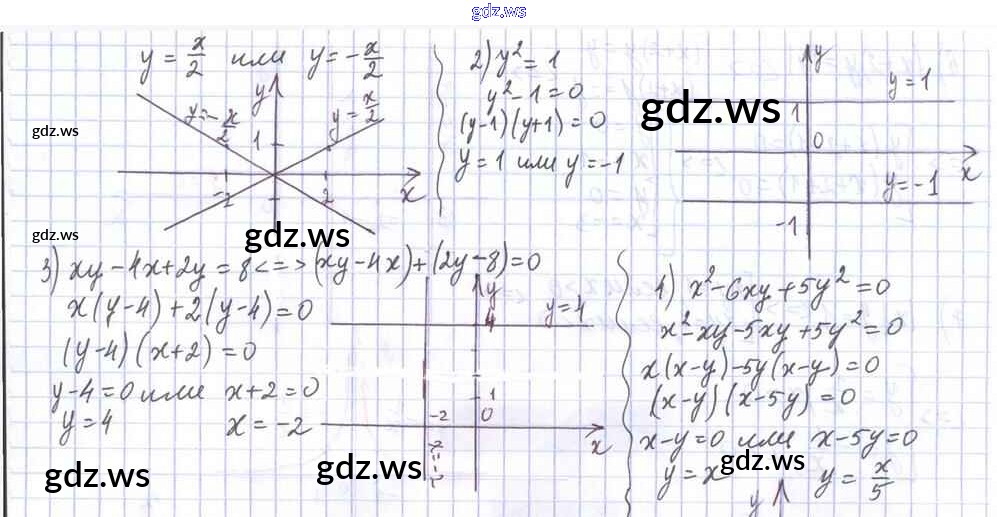 gdz.ws
y = x/2 или y = -x/2
y
y=-x/2
y=x/2
1
-2
2
x
gdz.ws
gdz.ws
2) y² = 1
y² - 1 = 0
(y-1)(y+1) = 0
y = 1 или y = -1
gdz.ws
y
y = 1
1
0
x
y = -1
-1
gdz.ws
3) xy - 4x + 2y = 8 <=> (xy - 4x) + (2y - 8) = 0
x(y-4) + 2(y-4) = 0
(y-4)(x+2) = 0
y-4 = 0 или x+2 = 0
y = 4 x = -2
y
4
y = 4
1
-2
0
x
gdz.ws
gdz.ws
4) x² - 6xy + 5y² = 0
x² - xy - 5xy + 5y² = 0
x(x-y) - 5y(x-y) = 0
(x-y)(x-5y) = 0
x-y = 0 или x-5y = 0
gdz.ws
y = x y = x/5
y